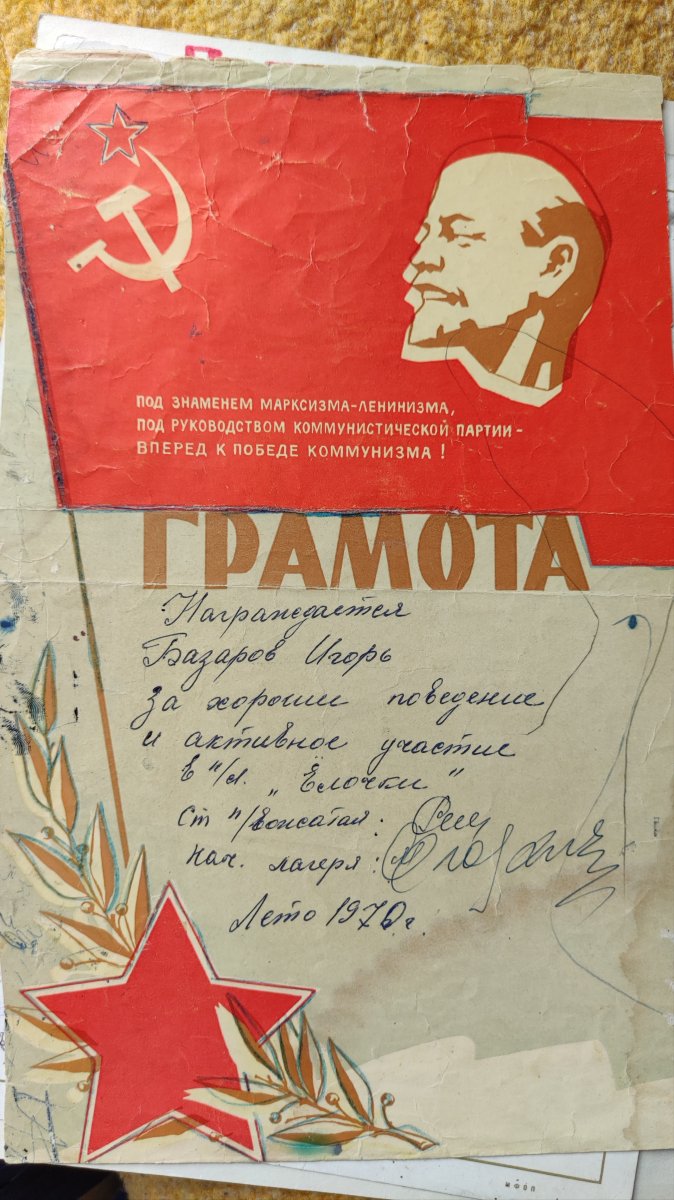 ПОД ЗНАМЕНЕМ МАРКСИЗМА-ЛЕНИНИЗМА,
ПОД РУКОВОДСТВОМ КОММУНИСТИЧЕСКОЙ ПАРТИИ -
ВПЕРЕД К ПОБЕДЕ КОММУНИЗМА !
ГРАМОТА
Награждается
Базаров Игорь
за хорошии поведение
и активное участие
в п/л. „Ёлочки"
Ст п/вожатая:
Нач. лагеря:
Лето 1970г.